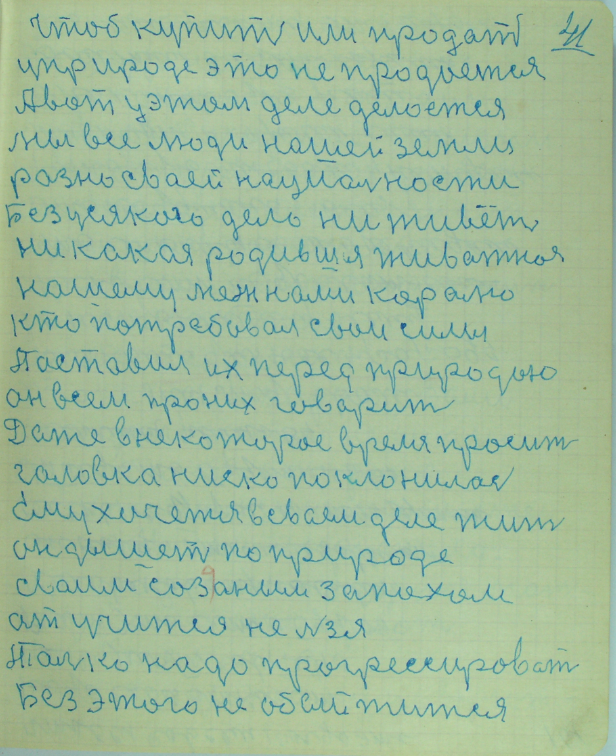 41
чтоб купить или продать
уприроде это не продается
Авот уэтом деле делоется
мы все люди нашей земли
разно сваей нацыалности
Без усякого дело ни живёт
ни какая родившия живатноя
нашему меж нами каралю
кто потребовал свои силы
Паставил их перед природыю
он всем проних говарит
Даже внекоторое время просит
галовка ниско поклонилас
ёму хичетя в сваем деле жит
он дышет по природе
сваим созданым запахом
от учится не лзя
Толко надо прогрессироват
Без этого не обейтится